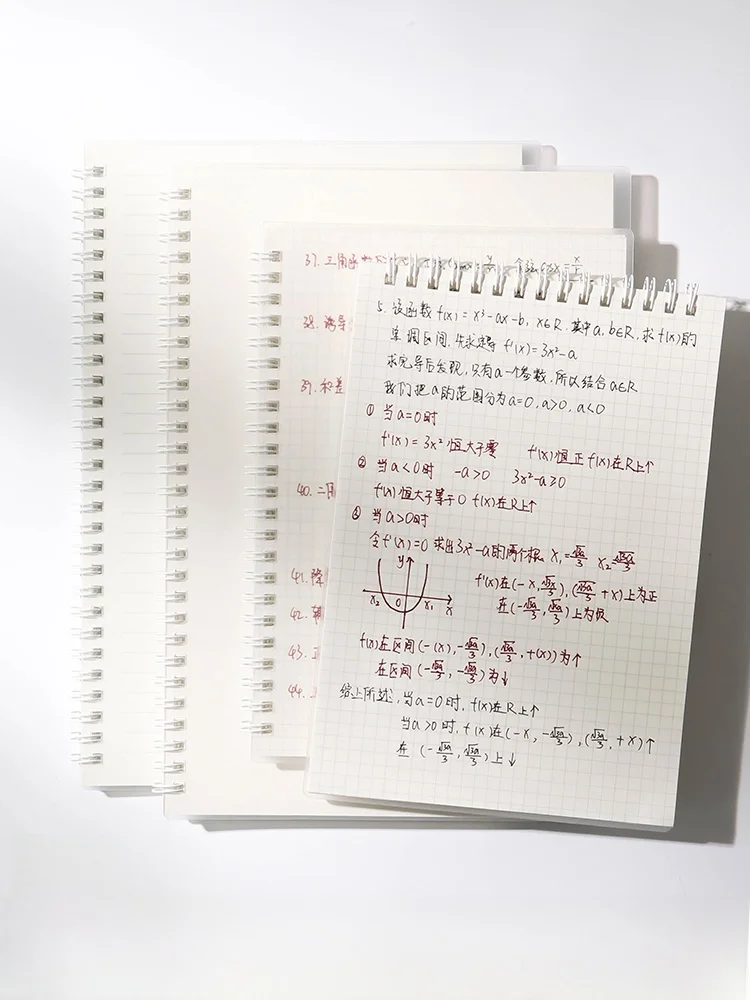 37. 三角函
38. 诱导
39. 和差
40. 二
41. 降
42. 辅
43.
44.
5. 设函数 f(x) = x³-ax-b, x∈R, 其中a, b∈R, 求f(x)的
单调区间, 先求定导 f'(x) = 3x²-a
求完导后发现, 只有a一个参数, 所以结合a∈R
我们把a的范围分为a=0, a>0, a<0
① 当a=0时
f'(x) = 3x² 恒大于零 f'(x)恒正 f(x)在R上↑
② 当a<0时 -a>0 3x²-a≥0
f'(x)恒大于等于0 f(x)在R上↑
③ 当a>0时
令f'(x)=0 求出3x²-a的两个根 x₁=√3a/3 x₂=√3a/3
y
x₂ 0 x₁ x
f'(x)在(-x, √3x/3), (√3a/3 +x)上为正
在(-√3a/3, √3a/3)上为负
f(x)在区间(-(x), -√3a/3), (√3a/3, +(x))为↑
在区间(-√3a/3, -√3a/3)为↓
综上所述, 当a=0时, f(x)在R上↑
当a>0时, f(x)在(-x, -√3a/3), (√3a/3, +x)↑
在 (-√3a/3, √3a/3)上↓